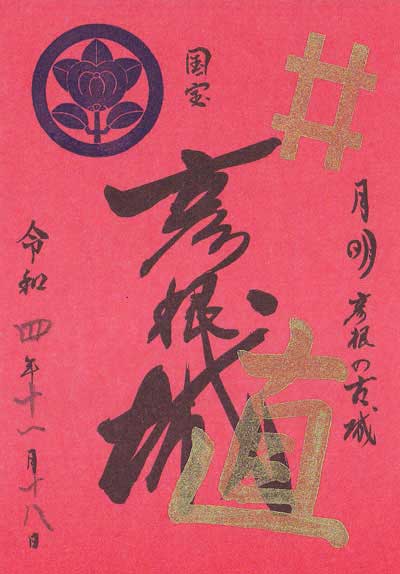 井
国宝
月明彦根の古城
彦根城
直
令和四年十一月十八日